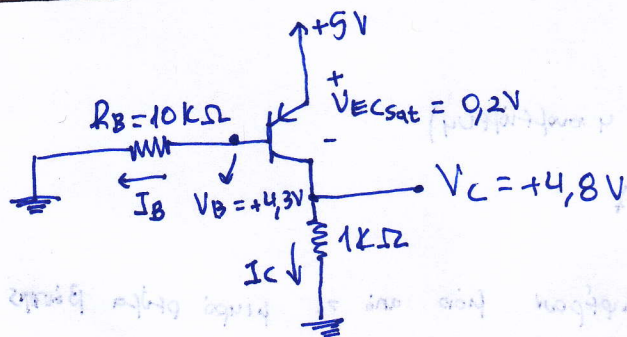 +5V
+
V_ECsat = 0,2V
-
R_B=10KΩ
I_B
V_B=+4,3V
V_C=+4,8V
1KΩ
I_C